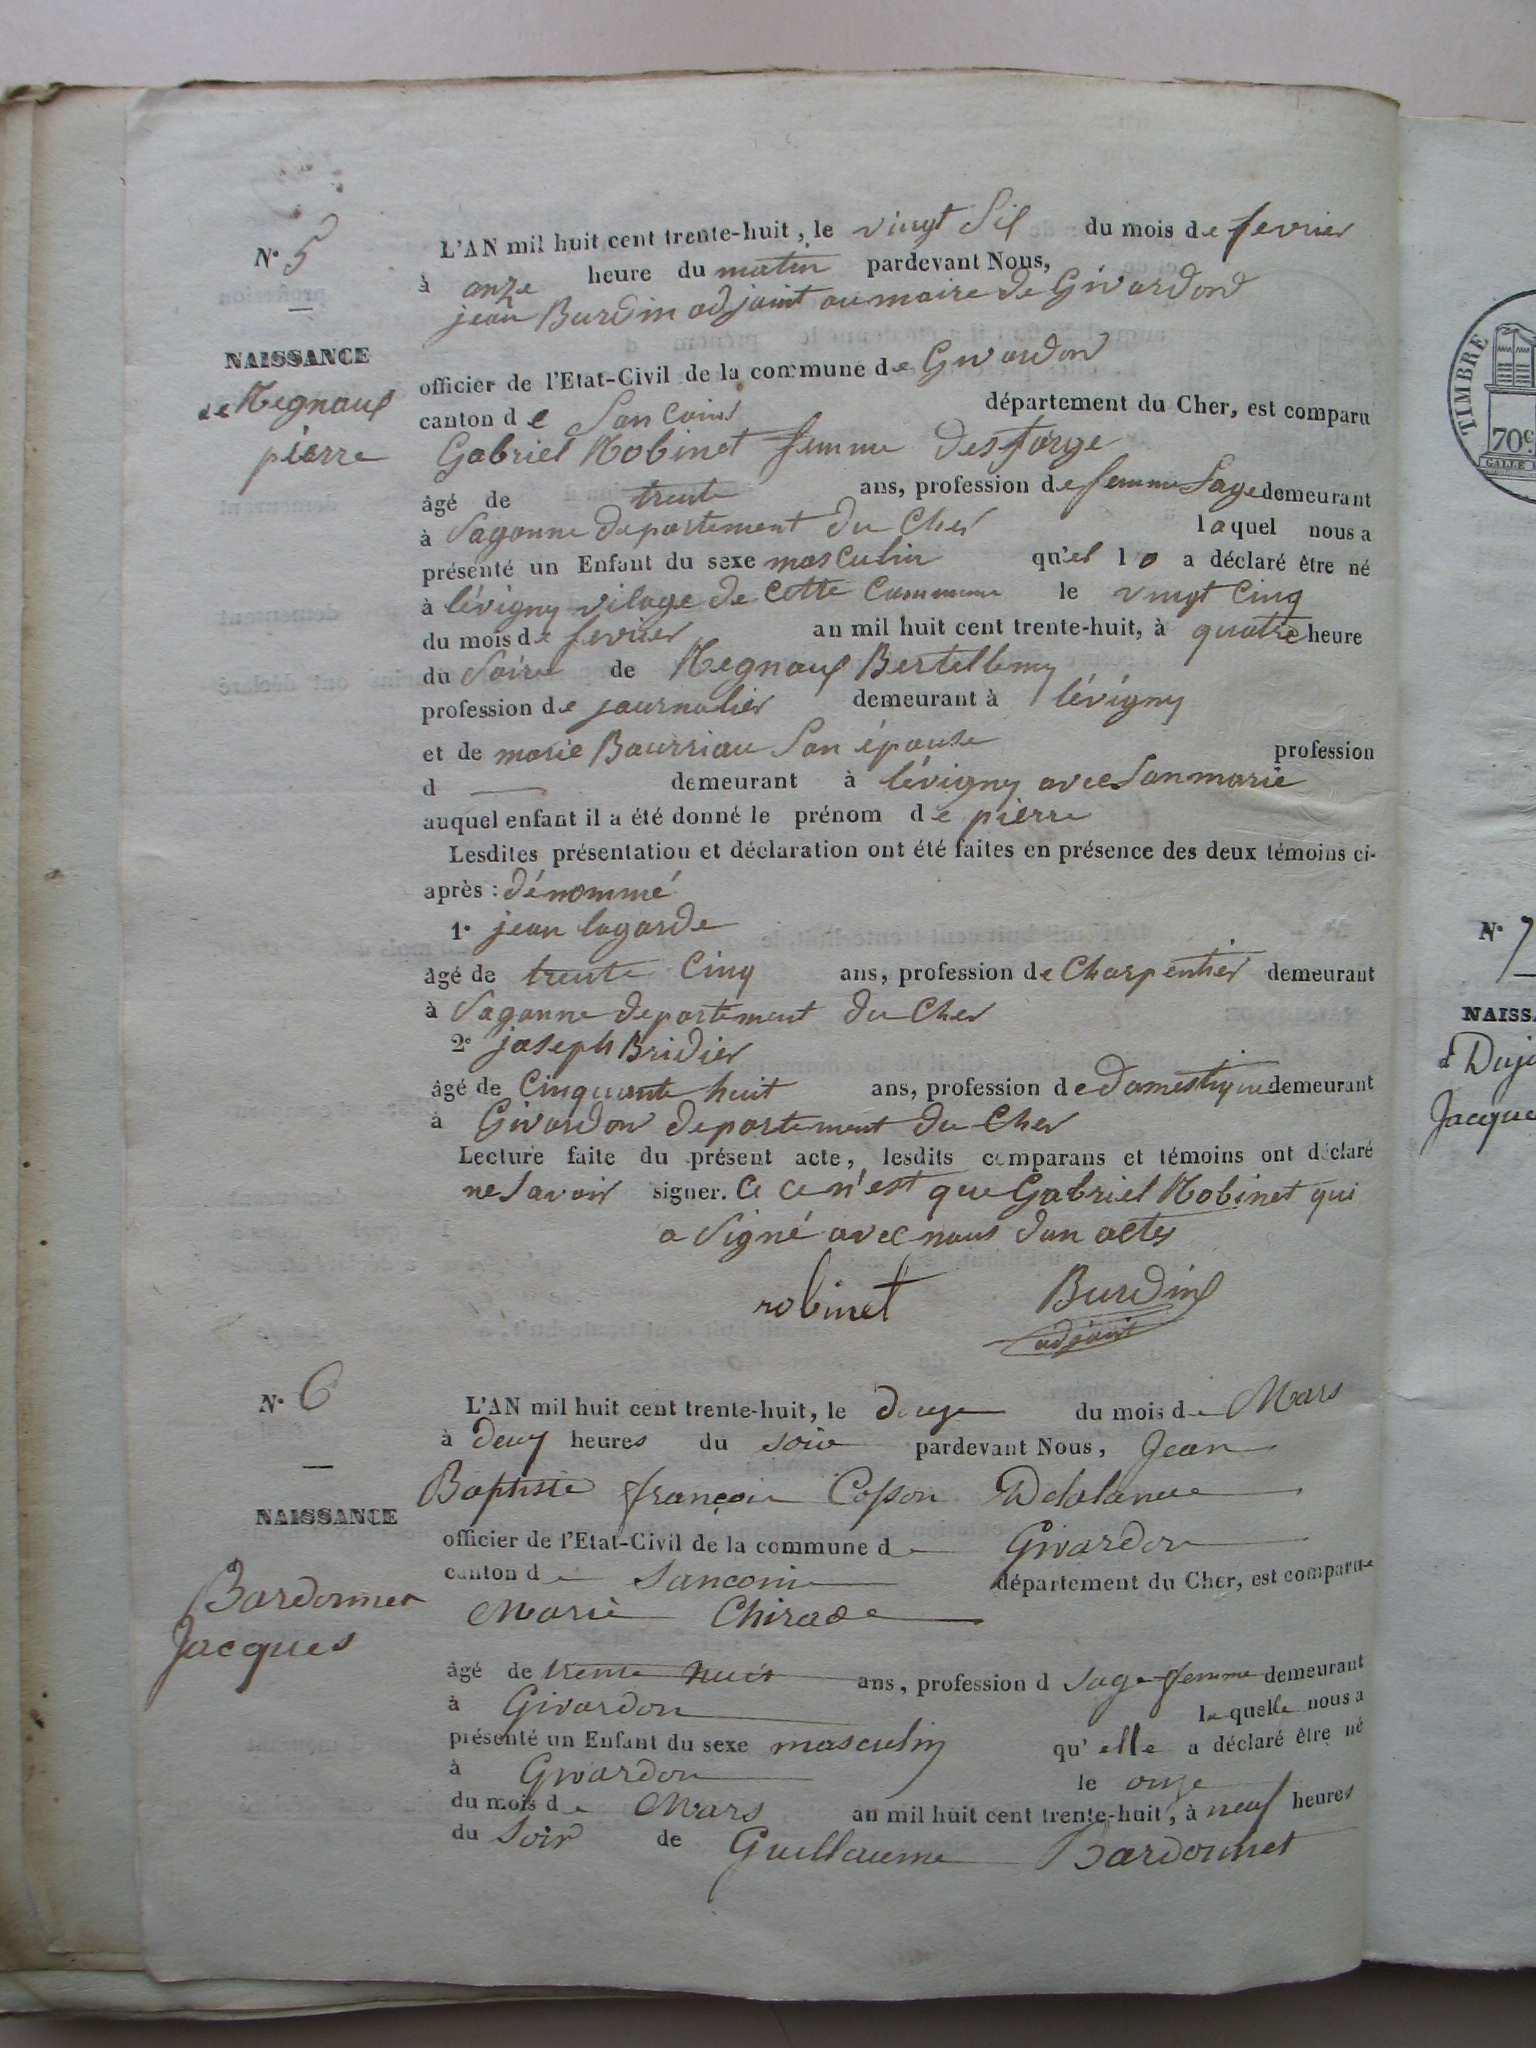 N° 5
NAISSANCE
de Regnaux
pierre
L'AN mil huit cent trente-huit, le vingt Six du mois de fevrier
à onze heure du matin pardevant Nous,
jean Burdin adjoint au maire de Givardon
officier de l'Etat-Civil de la commune de Givardon
canton de Sancoins département du Cher, est comparu
Gabriel Robinet femme Desforge
âgé de trente ans, profession de femme Sage demeurant
à Sagonne departement du Cher laquel nous a
présenté un Enfant du sexe masculin qu'el l a a déclaré être né
à lévigny vilage de cette Commune le vingt Cinq
du mois de fevrier an mil huit cent trente-huit, à quatre heure
du Soire de Regnaux Bertellemy
profession de journalier demeurant à lévigny
et de marie Bourriau Son épouse profession
d — demeurant à lévigny avec Son marie
auquel enfant il a été donné le prénom de pierre
Lesdites présentation et déclaration ont été faites en présence des deux témoins ci-
après : dénommé
1° jean lagarde
âgé de trente Cinq ans, profession de Charpentier demeurant
à Sagonne departement du Cher
2° joseph Bridier
âgé de Cinquante huit ans, profession de domestique demeurant
à Givardon departement du Cher
Lecture faite du présent acte, lesdits comparans et témoins ont déclaré
ne Savoir signer. Ce ce n'est que Gabriel Robinet qui
a Signé avec nous don actes
robinet Burdin
adjoint
N° 6
NAISSANCE
d
Bardonnet
Jacques
L'AN mil huit cent trente-huit, le douze du mois de Mars
à deux heures du soir pardevant Nous, Jean
Baptiste françois Cosson Delalande
officier de l'Etat-Civil de la commune de Givardon
canton de Sancoins département du Cher, est comparue
Marie Chirade
âgé de trente huit ans, profession d sage femme demeurant
à Givardon laquelle nous a
présenté un Enfant du sexe masculin qu'elle a déclaré être né
à Givardon le onze
du mois de Mars an mil huit cent trente-huit, à neuf heures
du Soir de Guillaume Bardonnet
TIMBRE
70c
N° 7
NAISSA
d Duja
Jacque